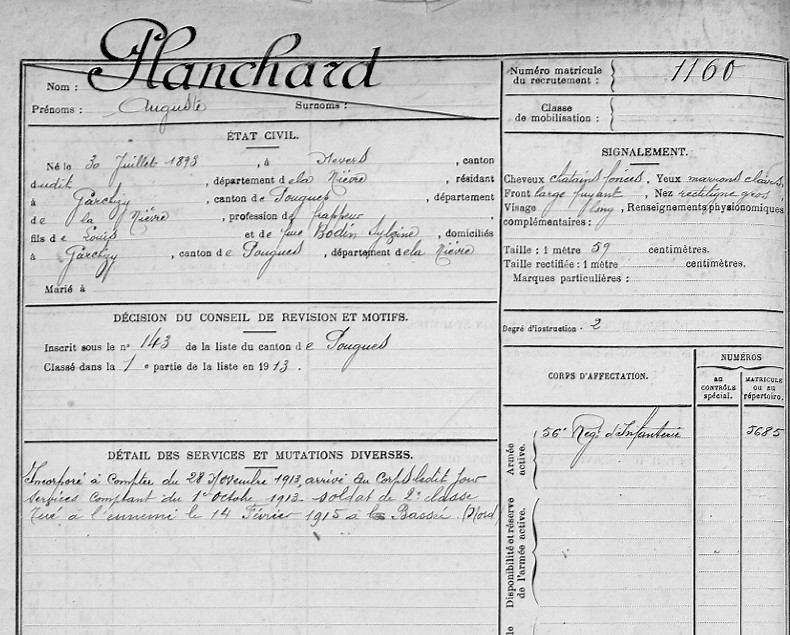 Nom : Planchard
Prénoms : Auguste Surnoms :
ÉTAT CIVIL.
Né le 30 Juillet 1893, à Nevers, canton
dudit, département de la Nièvre, résidant
à Garchizy, canton de Pougues, département
de la Nièvre, profession de frappeur
fils de Louis et de feue Bodin Sylvine, domiciliés
à Garchizy, canton de Pougues, département de la Nièvre
Marié à
DÉCISION DU CONSEIL DE REVISION ET MOTIFS.
Inscrit sous le n° 143 de la liste du canton de Pougues
Classé dans la 1e partie de la liste en 1913.
DÉTAIL DES SERVICES ET MUTATIONS DIVERSES.
Incorporé à compter du 28 Novembre 1913, arrivé au Corps ledit jour
Services comptant du 1er Octobre 1913. Soldat de 2e classe
Tué à l'ennemi le 14 Février 1915 à la Bassée (Nord)
Numéro matricule du recrutement : 1160
Classe de mobilisation :
SIGNALEMENT.
Cheveux chatains foncés, Yeux marrons clairs,
Front large fuyant, Nez rectiligne gros
Visage long, Renseignements physionomiques
complémentaires :
Taille : 1 mètre 59 centimètres.
Taille rectifiée : 1 mètre centimètres.
Marques particulières :
Degré d'instruction : 2
CORPS D'AFFECTATION.
NUMÉROS
AU CONTRÔLE spécial.
MATRICULE OU AU répertoire.
Armée active.
56e Régt d'Infanterie 5685
Disponibilité et réserve de l'armée active.